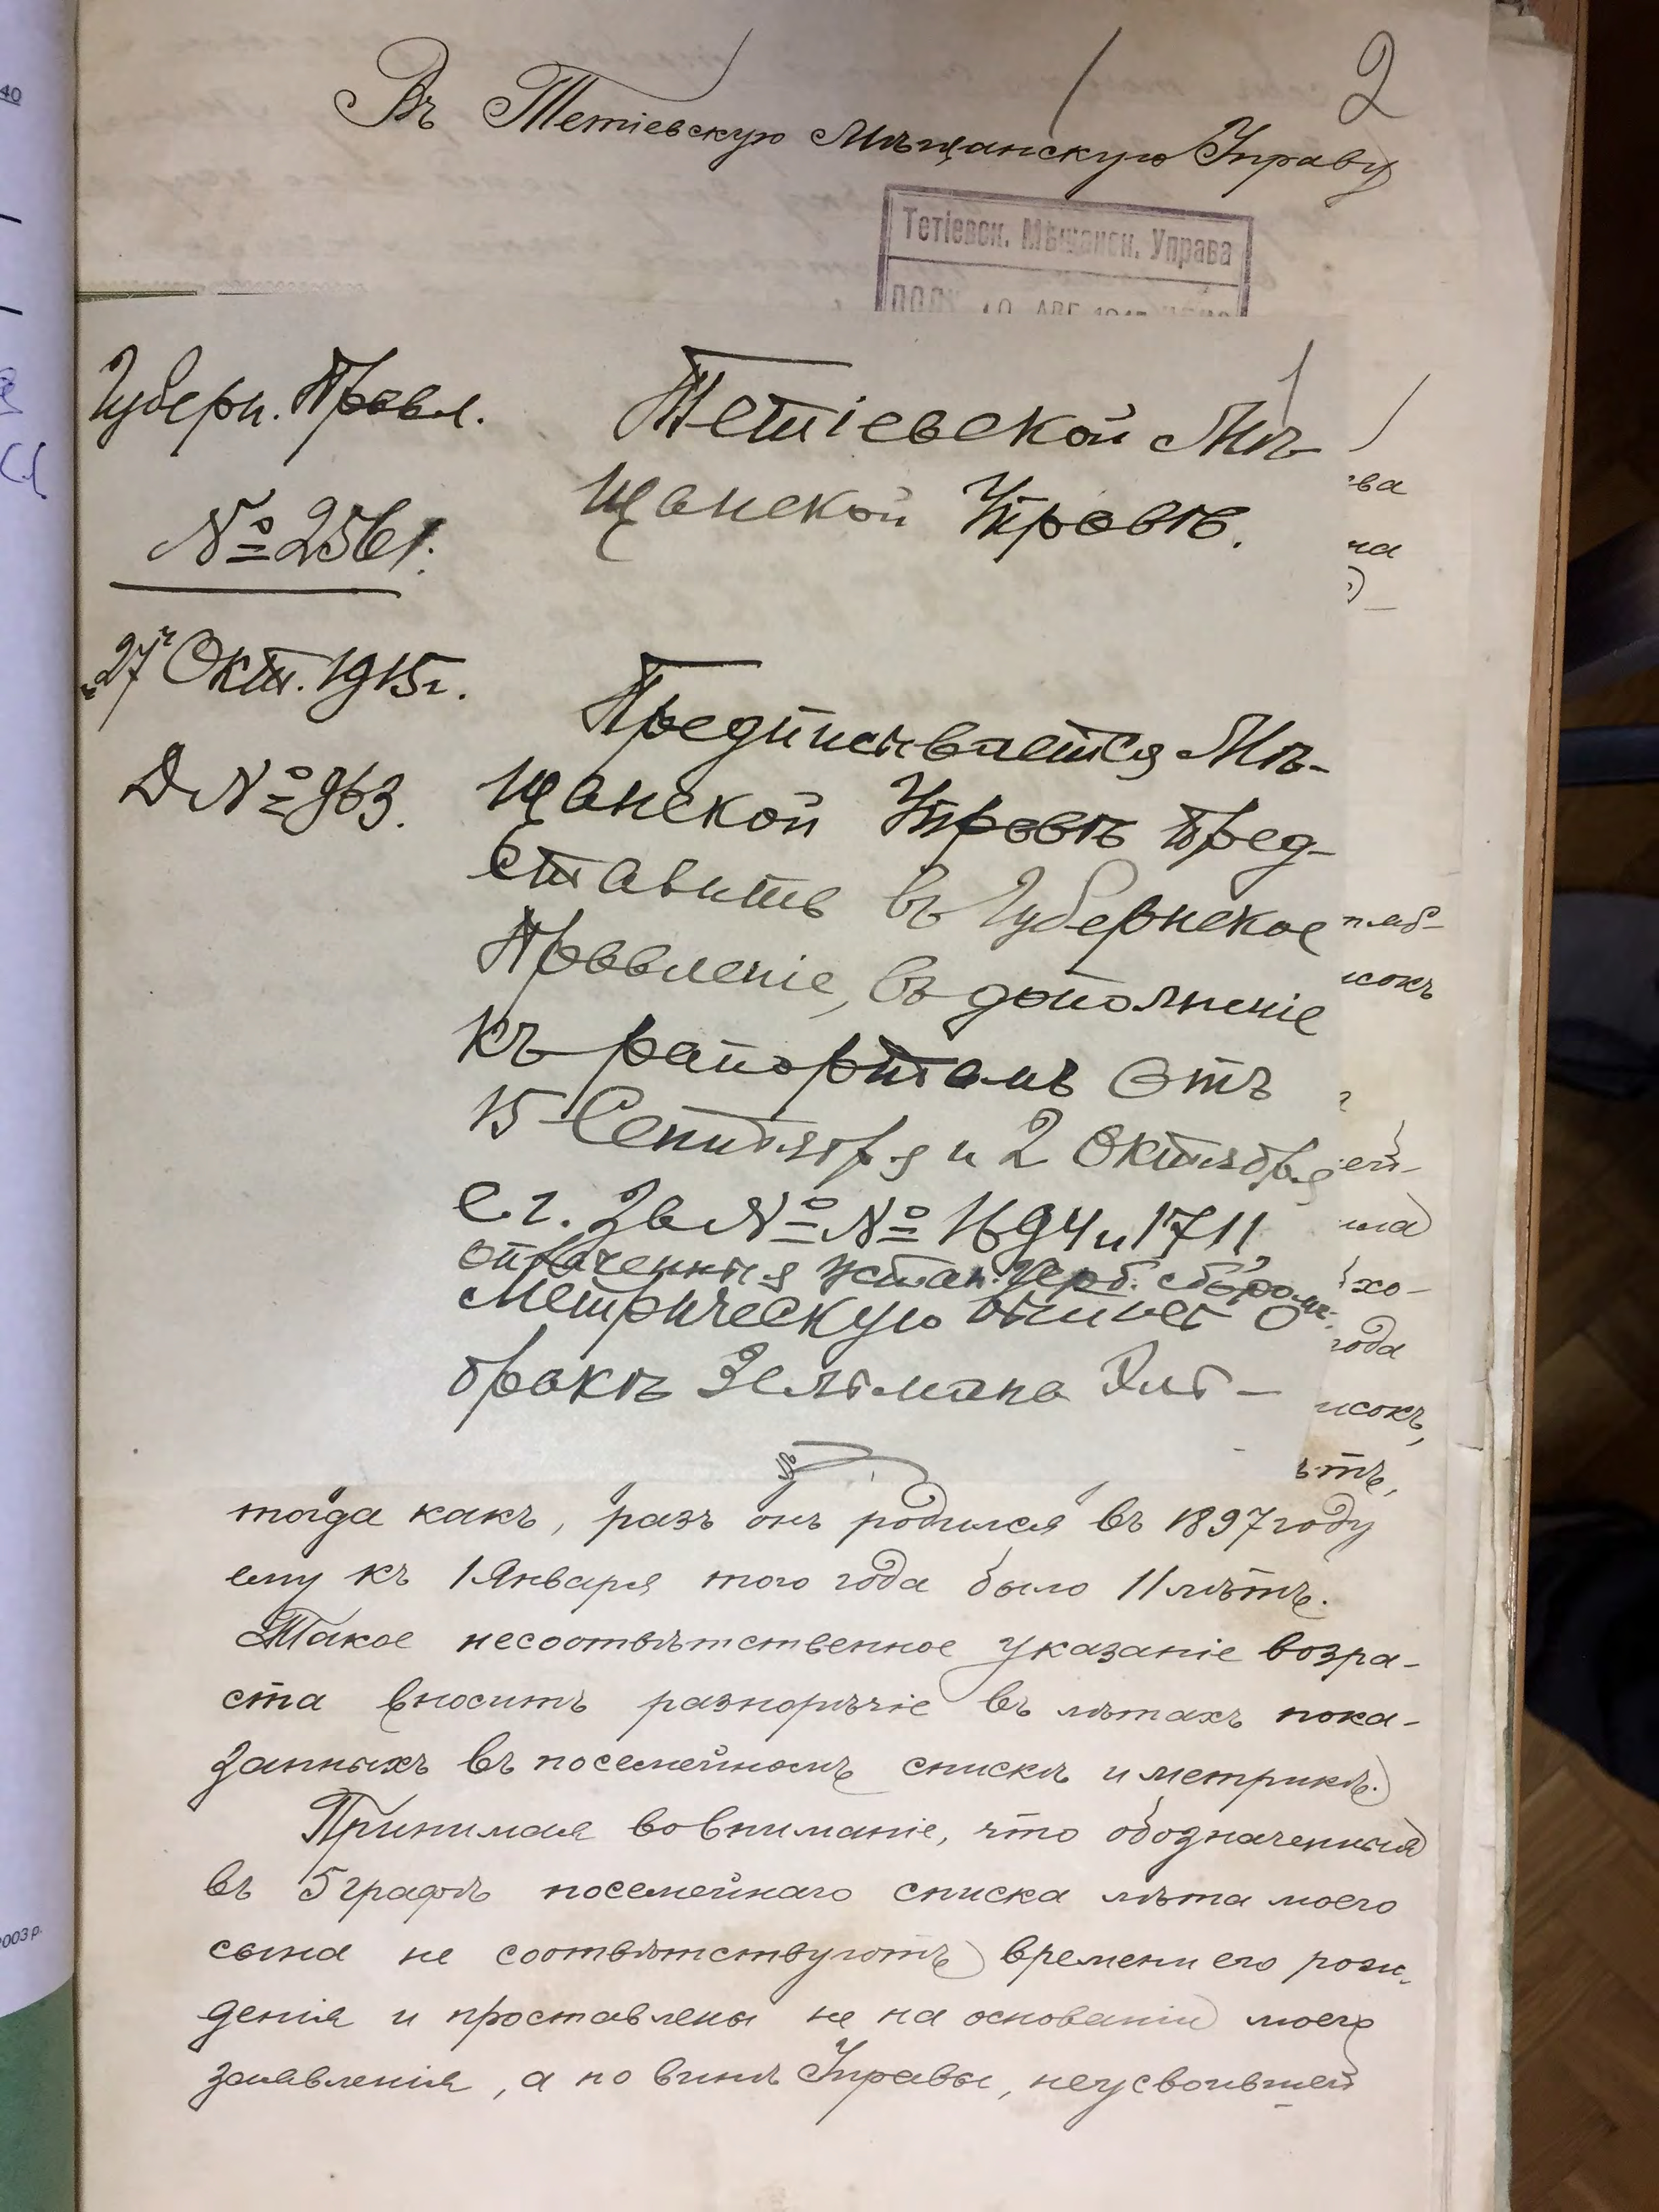 2
Въ Тетіевскую Мѣщанскую Управу
Тетіевск. Мѣщанск. Управа
АВГ.
Губерн. Правл.
№ 2561.
"27" Окт. 1915г.
Д № 963.
Тетіевской Мѣ
щанской Управѣ.
Предписывается Мѣ-
щанской Управѣ пред-
ставить въ Губернское
Правленіе, въ дополненіе
къ рапортамъ отъ
15 Сентября и 2 Октября
с. г. за №№ 1694 и 1711,
оплаченныя устан. Герб. сборомъ
Метрическую о
бракѣ Зельмана
ва
на
исокъ
ей-
хо-
года
исокъ,
тогда какъ, разъ онъ родился въ 1897 году
ему къ 1 Января того года было 11 лѣтъ.
Такое несоотвѣтственное указаніе возра-
ста вноситъ разнорѣчіе въ лѣтахъ пока-
занныхъ въ посемейномъ спискѣ и метрикѣ.
Принимая во вниманіе, что обозначенныя
въ 5 графѣ посемейнаго списка лѣта моего
сына не соотвѣтствуютъ времени его рож-
денія и проставлены не на основаніи моего
заявленія, а по винѣ Управы, неусвоившей
40
2003 р.